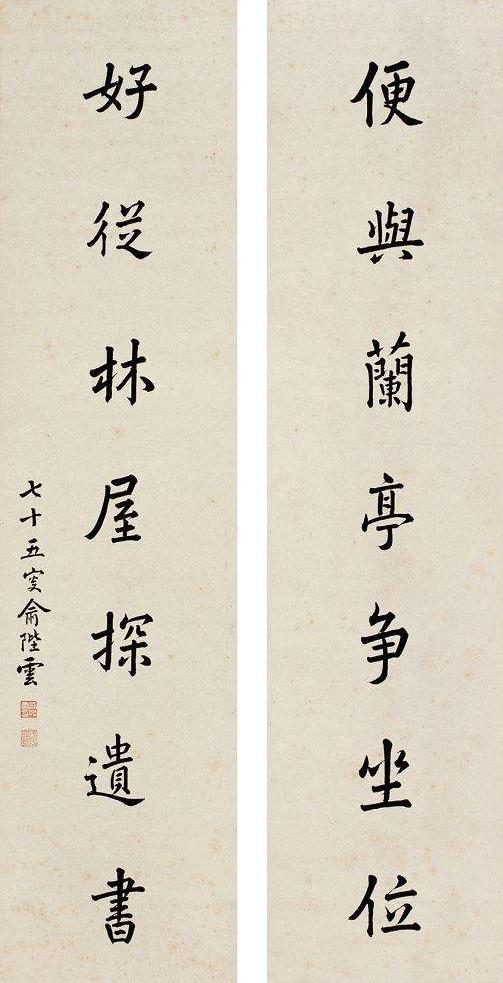 便與蘭亭争坐位
好從林屋探遺書
七十五叟俞陛雲